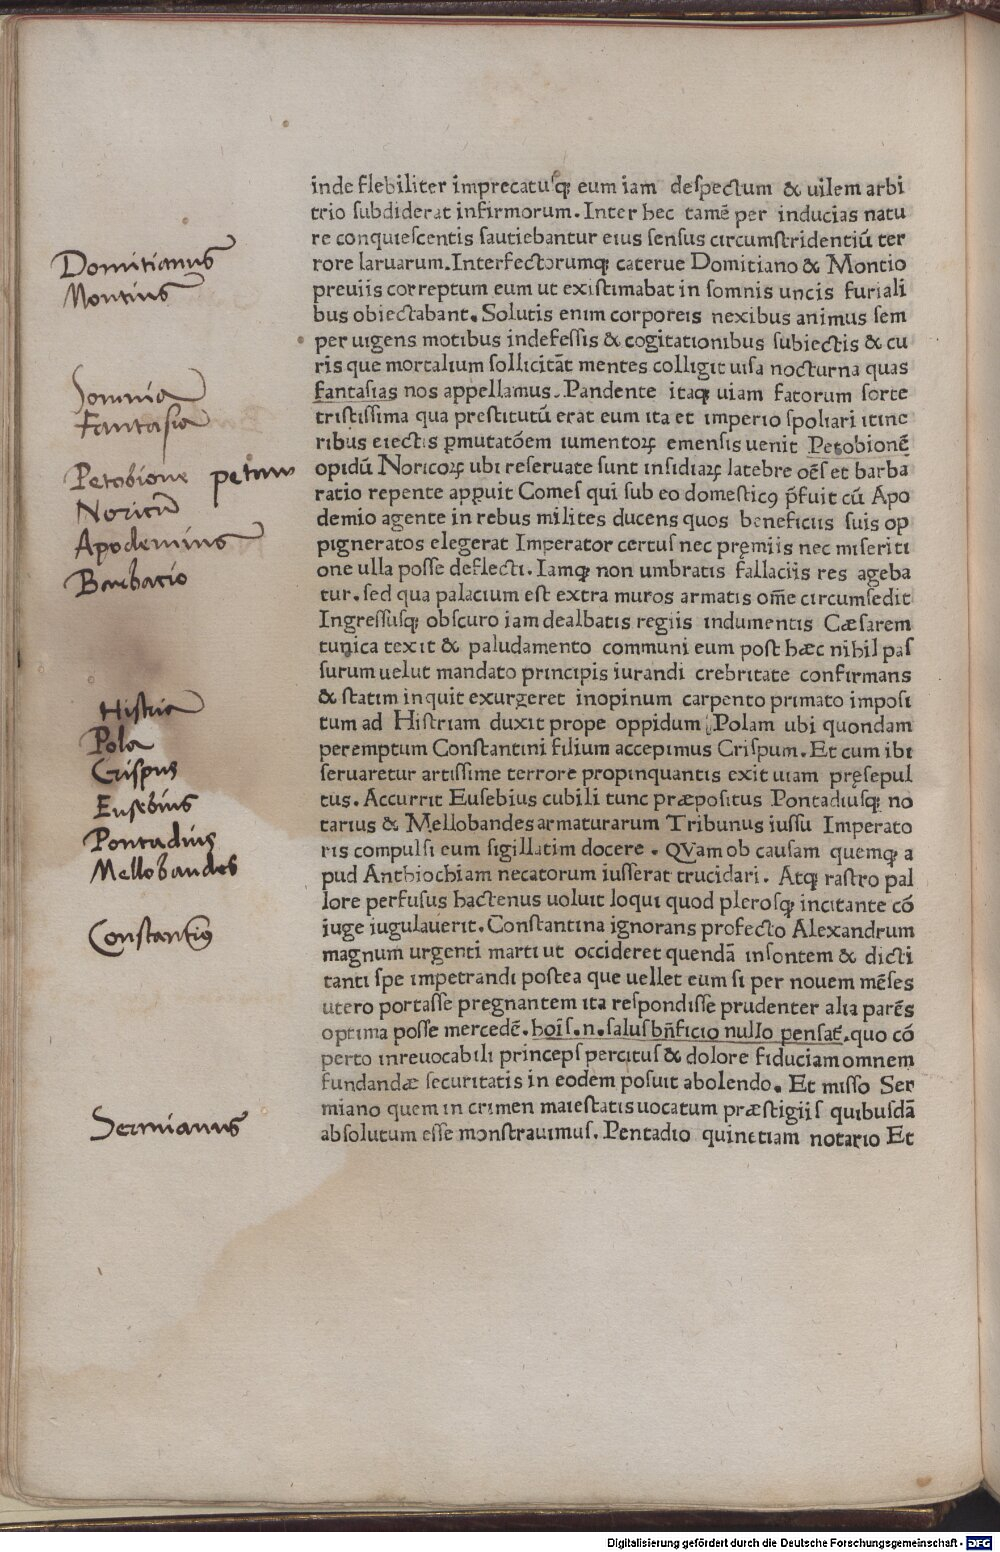 inde flebiliter imprecatuſq; eum iam deſpectum & uilem arbi
trio ſubdiderat infirmorum. Inter hec tamē per inducias natu
re conquieſcentis ſautiebantur eius ſenſus circumſtridentiū ter
rore laruarum. Interfectorumq; caterue Domitiano & Montio
preuiis correptum eum ut exiſtimabat in ſomnis uncis furiali
bus obiectabant. Solutis enim corporeis nexibus animus ſem
per uigens motibus indefeſſis & cogitationibus ſubiectis & cu
ris que mortalium ſollicitāt mentes colligit uiſa nocturna quas
fantaſias nos appellamus. Pandente itaq; uiam fatorum ſorte
triſtiſſima qua preſtitutū erat eum ita et imperio ſpoliari itine
ribus eiectis ꝑmutatōem iumentoꝝ emenſis uenit Petobionē
opidū Noricoꝝ ubi reſeruate ſunt inſidiaꝝ latebre oēſ et barba
ratio repente apꝑuit Comeſ qui ſub eo domeſticꝰ p̄fuit cū Apo
demio agente in rebus milites ducens quos beneficiis ſuis op
pigneratos elegerat Imperator certuſ nec pręmiis nec miſeriti
one ulla poſſe deflecti. Iamq; non umbratis fallaciis res ageba
tur. ſed qua palacium eſt extra muros armatis om̄e circumſedit
Ingreſſuſq; obſcuro iam dealbatis regiis indumentis Cæſarem
tunica texit & paludamento communi eum poſt hæc nihil paſ
ſurum uelut mandato principis iurandi crebritate confirmans
& ſtatim inquit exurgeret inopinum carpento primato impoſi
tum ad Hiſtriam duxit prope oppidum Polam ubi quondam
peremptum Conſtantini filium accepimus Criſpum. Et cum ibi
ſeruaretur artiſſime terrore propinquantis exit uiam pręſepul
tus. Accurrit Euſebius cubili tunc præpoſitus Pontadiuſq; no
tarius & Mellobandes armaturarum Tribunus iuſſu Imperato
ris compulſi eum ſigillatim docere. QVam ob cauſam quemq; a
pud Anthiochiam necatorum iuſſerat trucidari. Atq; raſtro pal
lore perfuſus hactenus uoluit loqui quod pleroſq; incitante cō
iuge iugulauerit. Conſtantina ignorans profecto Alexandrum
magnum urgenti marti ut occideret quendā inſontem & dicti
tanti ſpe impetrandi poſtea que uellet eum ſi per nouem mēſes
utero portaſſe pregnantem ita reſpondiſſe prudenter alia parēs
optima poſſe mercedē. hoīſ. n. ſalus bn̄ficio nullo penſat̄. quo cō
perto inreuocabili princeps percituſ & dolore fiduciam omnem
fundandæ ſecuritatis in eodem poſuit abolendo. Et miſſo Ser
miano quem in crimen maieſtatis uocatum præſtigiiſ quibuſdā
abſolutum eſſe monſtrauimuſ. Pentadio quinetiam notario Et
Domitianus
Montius
Somnia
Fantasia
Petobione petaw
Noricū
Apodemius
Barbatio
Histria
Pola
Crispus
Eusebius
Pontadius
Mellobandes
Constantiꝰ
Sermianus
Digitalisierung gefördert durch die Deutsche Forschungsgemeinschaft - DFG